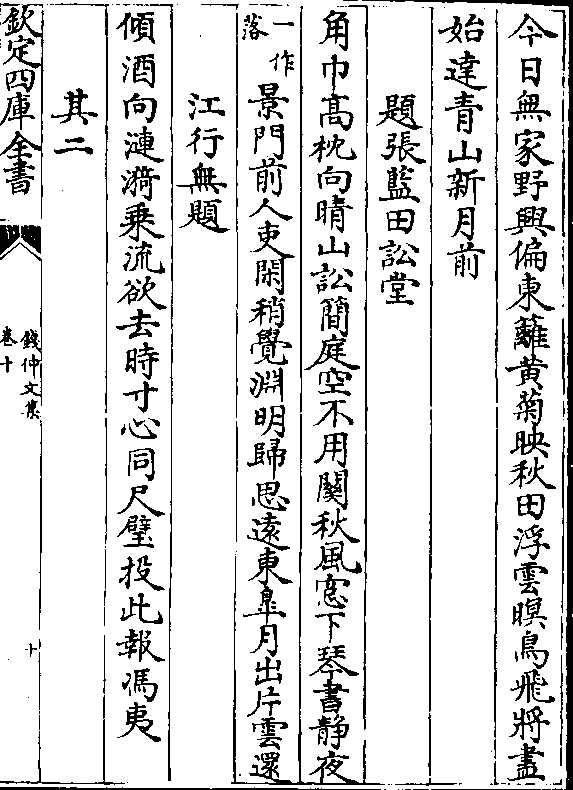 今日無家野興偏東籬黄菊映秋田浮雲暝鳥飛將盡
始達青山新月前
題張藍田訟堂
角巾髙枕向晴山訟簡庭空不用關秋風窓下琴書静夜
一作落景門前人吏閑稍覺淵明歸思逺東臯月出片雲還
江行無題
傾酒向漣漪乗流欲去時寸心同尺璧投此報馮夷
其二
欽定四庫全書
錢仲文集
卷十
十